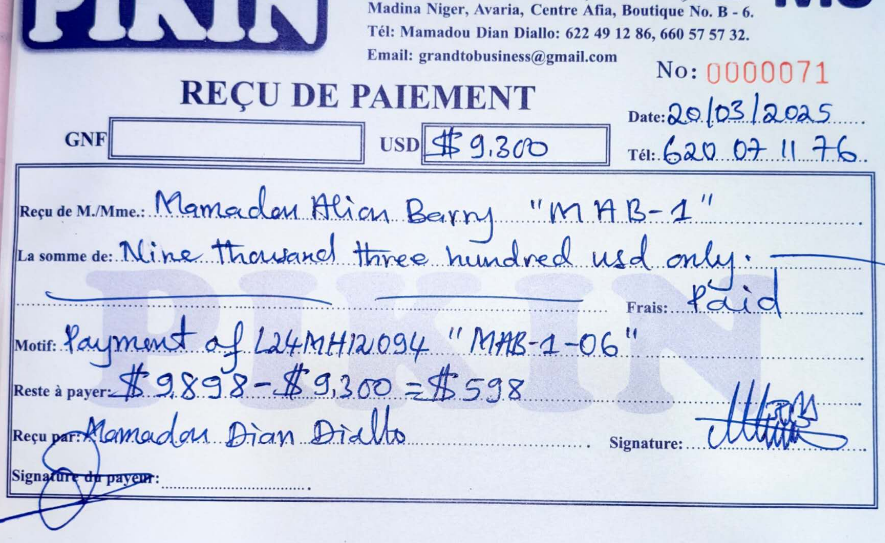 PIKIN
Madina Niger, Avaria, Centre Afia, Boutique No. B - 6.
Tél: Mamadou Dian Diallo: 622 49 12 86, 660 57 57 32.
Email: grandtobusiness@gmail.com
No: 0000071
REÇU DE PAIEMENT
Date: 20/03/2025
GNF
USD $ 9.300
Tél: 620 07 11 76
Reçu de M./Mme.: Mamadou Alion Barry "MAB-1"
La somme de: Nine thousand three hundred usd only.
Frais: Paid
Motif: Payment of L24MH12094 "MAB-1-06"
Reste à payer: $ 9.898 - $ 9,300 = $ 598
Reçu par: Mamadou Dian Diallo
Signature:
Signature du payeur:
PIKIN